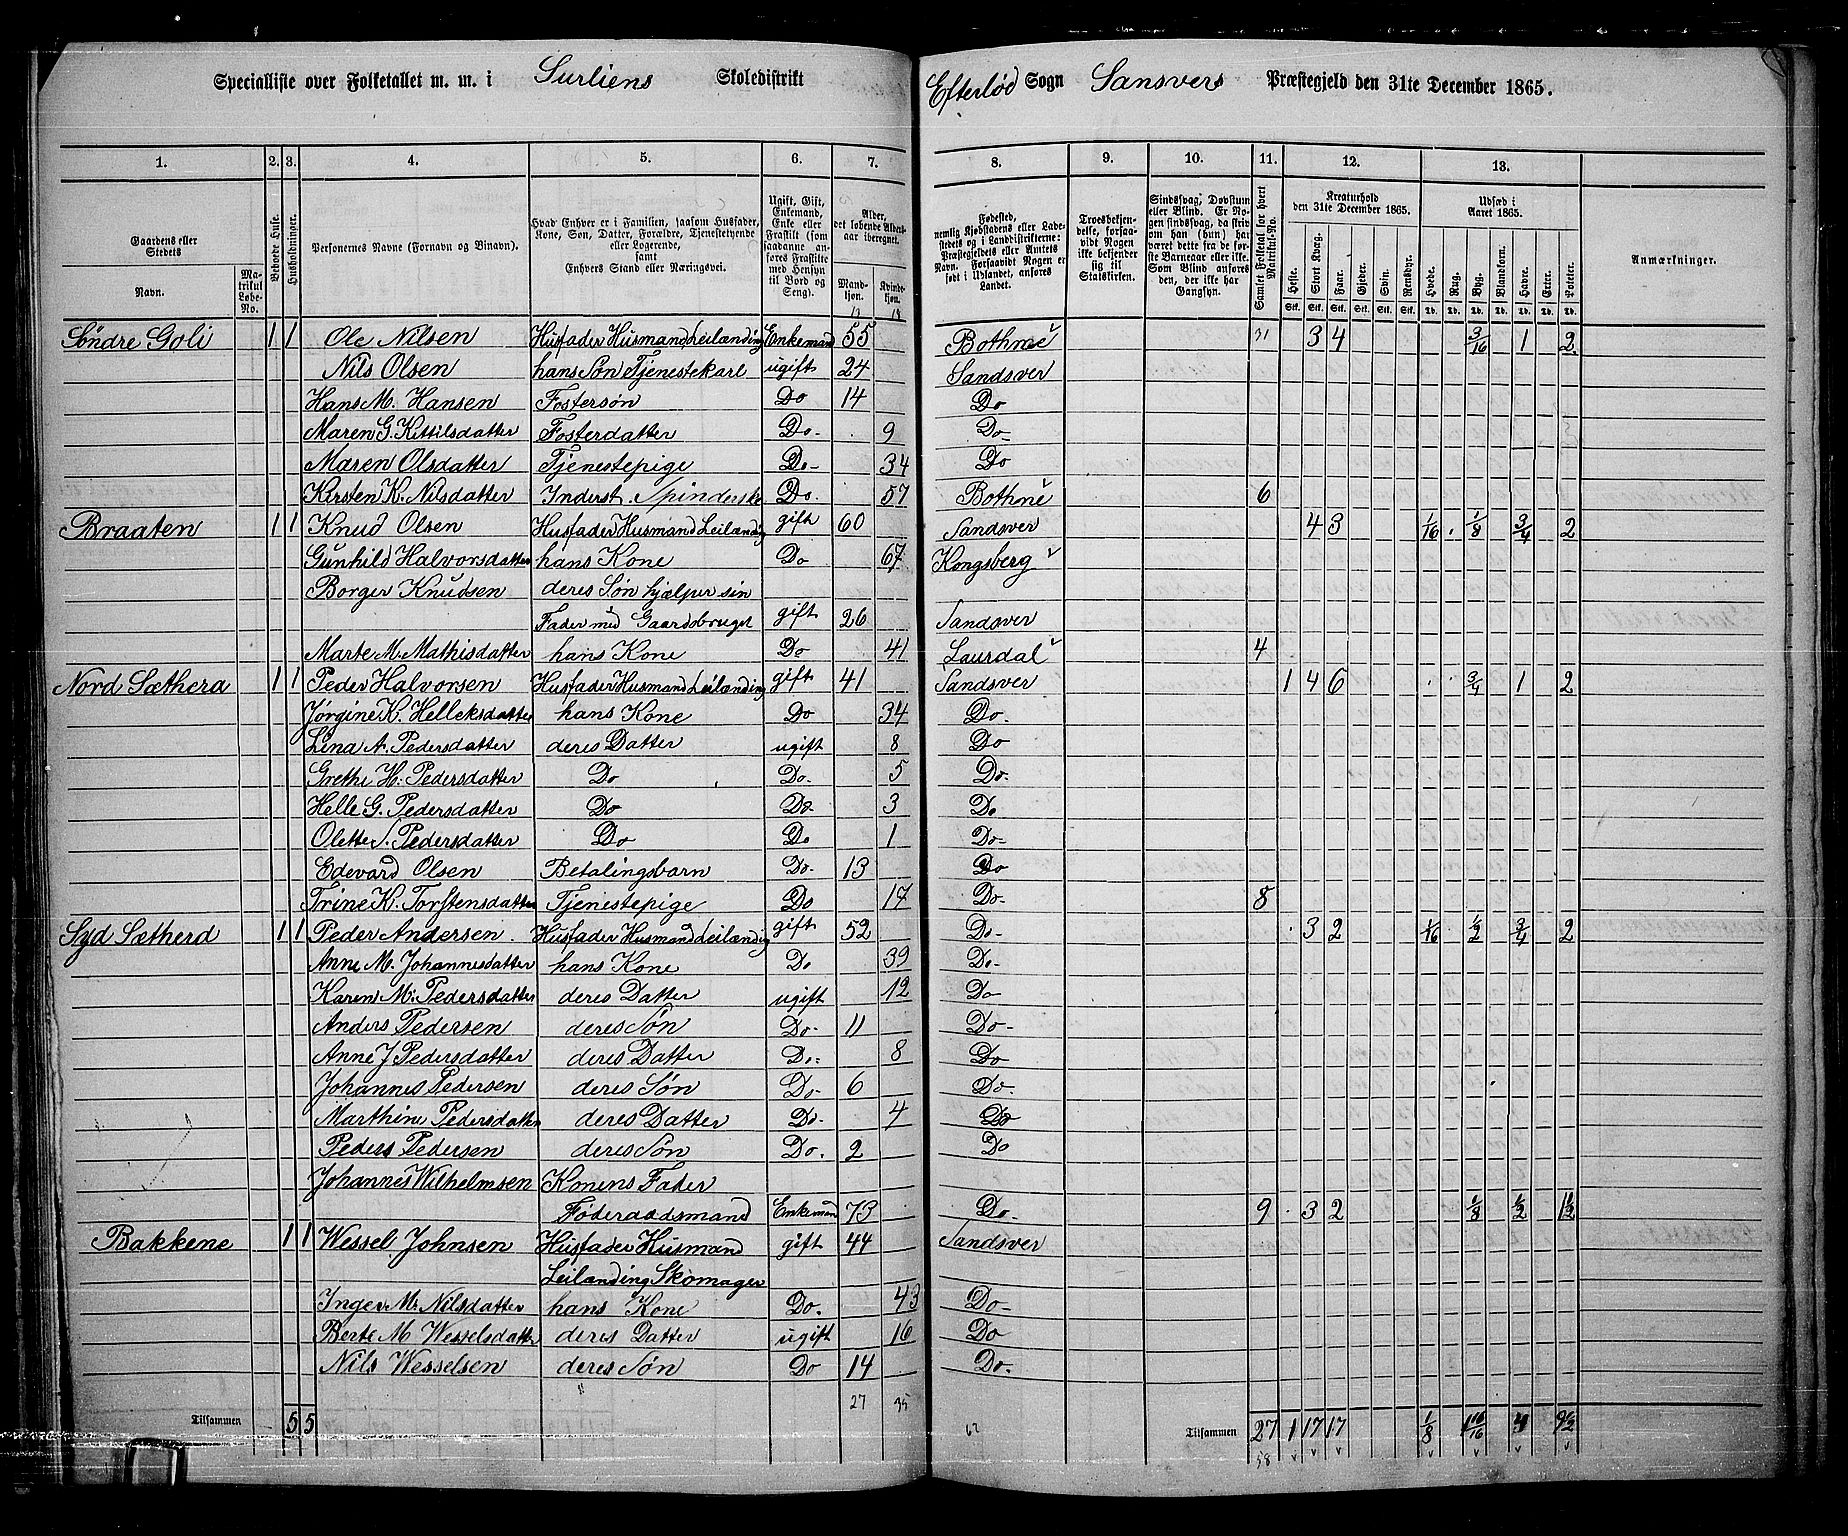 Specialliste over Folketallet m. m. i Surliens Skoledistrikt Efterlød Sogn Sansvers Præstegjeld den 31te December 1865.
1. 2. 3. 4. 5. 6. 7. 8. 9. 10. 11. 12. 13.
Gaardens eller Stedets Navn. Matrikul Løbe-No. Beboede Huse. Husholdninger. Personernes Navne (Fornavn og Binavn). Hvad Enhver er i Familien, saasom Husfader, Kone, Søn, Datter, Forældre, Tjenestetyende eller Logerende, samt Enhvers Stand eller Næringsvei. Ugift, Gift, Enkemand, Enke eller Fraskilt (som saadanne anføres Fraskilte med Hensyn til Bord og Seng). Alder, det løbende Alders-aar iberegnet. Mandkjøn. Kvindekjøn. Fødested, nemlig Kjøbstadens eller Ladestedets og i Landdistrikterne: Præstegjeldets eller Amtets Navn. Forsaavidt Nogen er født i Udlandet, anføres Landet. Troesbekjendelse, forsaavidt Nogen ikke bekjender sig til Statskirken. Sindssvag, Døvstum eller Blind. Er Nogen sindssvag, da skrives om han (hun) har været dette fra de første Barneaar eller ikke. Som Blind anføres den, der ikke har Gangsyn. Samlet Folketal for hvert Matrikul-No. Kreaturhold den 31te December 1865. Heste. Stort Kvæg. Faar. Gjeder. Svin. Rensdyr. Udsæd i Aaret 1865. Hvede. Rug. Byg. Blandkorn. Havre. Erter. Poteter. Anmærkninger.
Stk. Stk. Stk. Stk. Stk. Stk. Td. Td. Td. Td. Td. Td. Td.
Søndre Goli 1 1 Ole Nilsen Husfader Husmand Leilænding Enkemand 55 Bothne 3 4 3/16 1 2
Nils Olsen hans Søn Tjenestekarl ugift 24 Sandsver
Hans M. Hansen Fostersøn Do 14 Do
Maren G. Kittilsdatter Fosterdatter Do 9 Do
Maren Olsdatter Tjenestepige Do 34 Do
Kirsten K. Nilsdatter Inderst. Spinderske Do. 57 Bothne 6
Braaten 1 1 Knud Olsen Husfader Husmand Leilænding gift 60 Sandsver 4 3 1/16 1/8 3/4 2
Gunhild Halvorsdatter hans Kone Do 67 Kongsberg
Borger Knudsen deres Søn hjælper sin
Fader med Gaardsbruget gift 26 Sandsver
Marte M. Mathisdatter hans Kone Do 41 Laurdal 4
Nord Sæthera 1 1 Peder Halvorsen Husfader Husmand Leilænding gift 41 Sandsver 1 4 6 3/4 1 2
Jørgine K. Helleksdatter hans Kone Do 34 Do.
Lina A. Pedersdatter deres Datter ugift 8 Do
Grethe H. Pedersdatter Do Do. 5 Do.
Helle G. Pedersdatter Do Do 3 Do
Olette S. Pedersdatter Do Do 1 Do
Edevard Olsen Betalingsbarn Do. 13 Do
Trine K. Torstensdatter Tjenestepige Do 17 Do. 8
Syd Sætherd 1 1 Peder Andersen. Husfader Husmand Leilænding gift 52 Do 3 2 1/16 1/2 3/4 2
Anne M. Johannesdatter hans Kone Do 39 Do
Karen M. Pedersdatter deres Datter ugift 12 Do
Anders Pedersen deres Søn Do 11 Do
Anne J Pedersdatter deres Datter Do. 8 Do
Johannes Pedersen deres Søn Do 6 Do.
Marthine Pedersdatter deres Datter Do. 4 Do
Peders Pedersen deres Søn Do. 2 Do
Johannes Wilhelmsen Konens Fader
Føderaadsmand Enkeman 73 Do. 9 3 2 1/8 1/2 1 1/2
Bakkene 1 1 Wessel Johnsen Husfader Husmand gift 44 Sandsver
Leilænding Skomager
Inger M. Nilsdatter hans Kone Do. 43 Do
Berte M Wesselsdatter deres Datter ugift 16 Do
Nils Wesselsen deres Søn Do 14 Do.
27 35 62
Tilsammen 5 5 Tilsammen 27 1 17 17 1/8 9 1/2
58